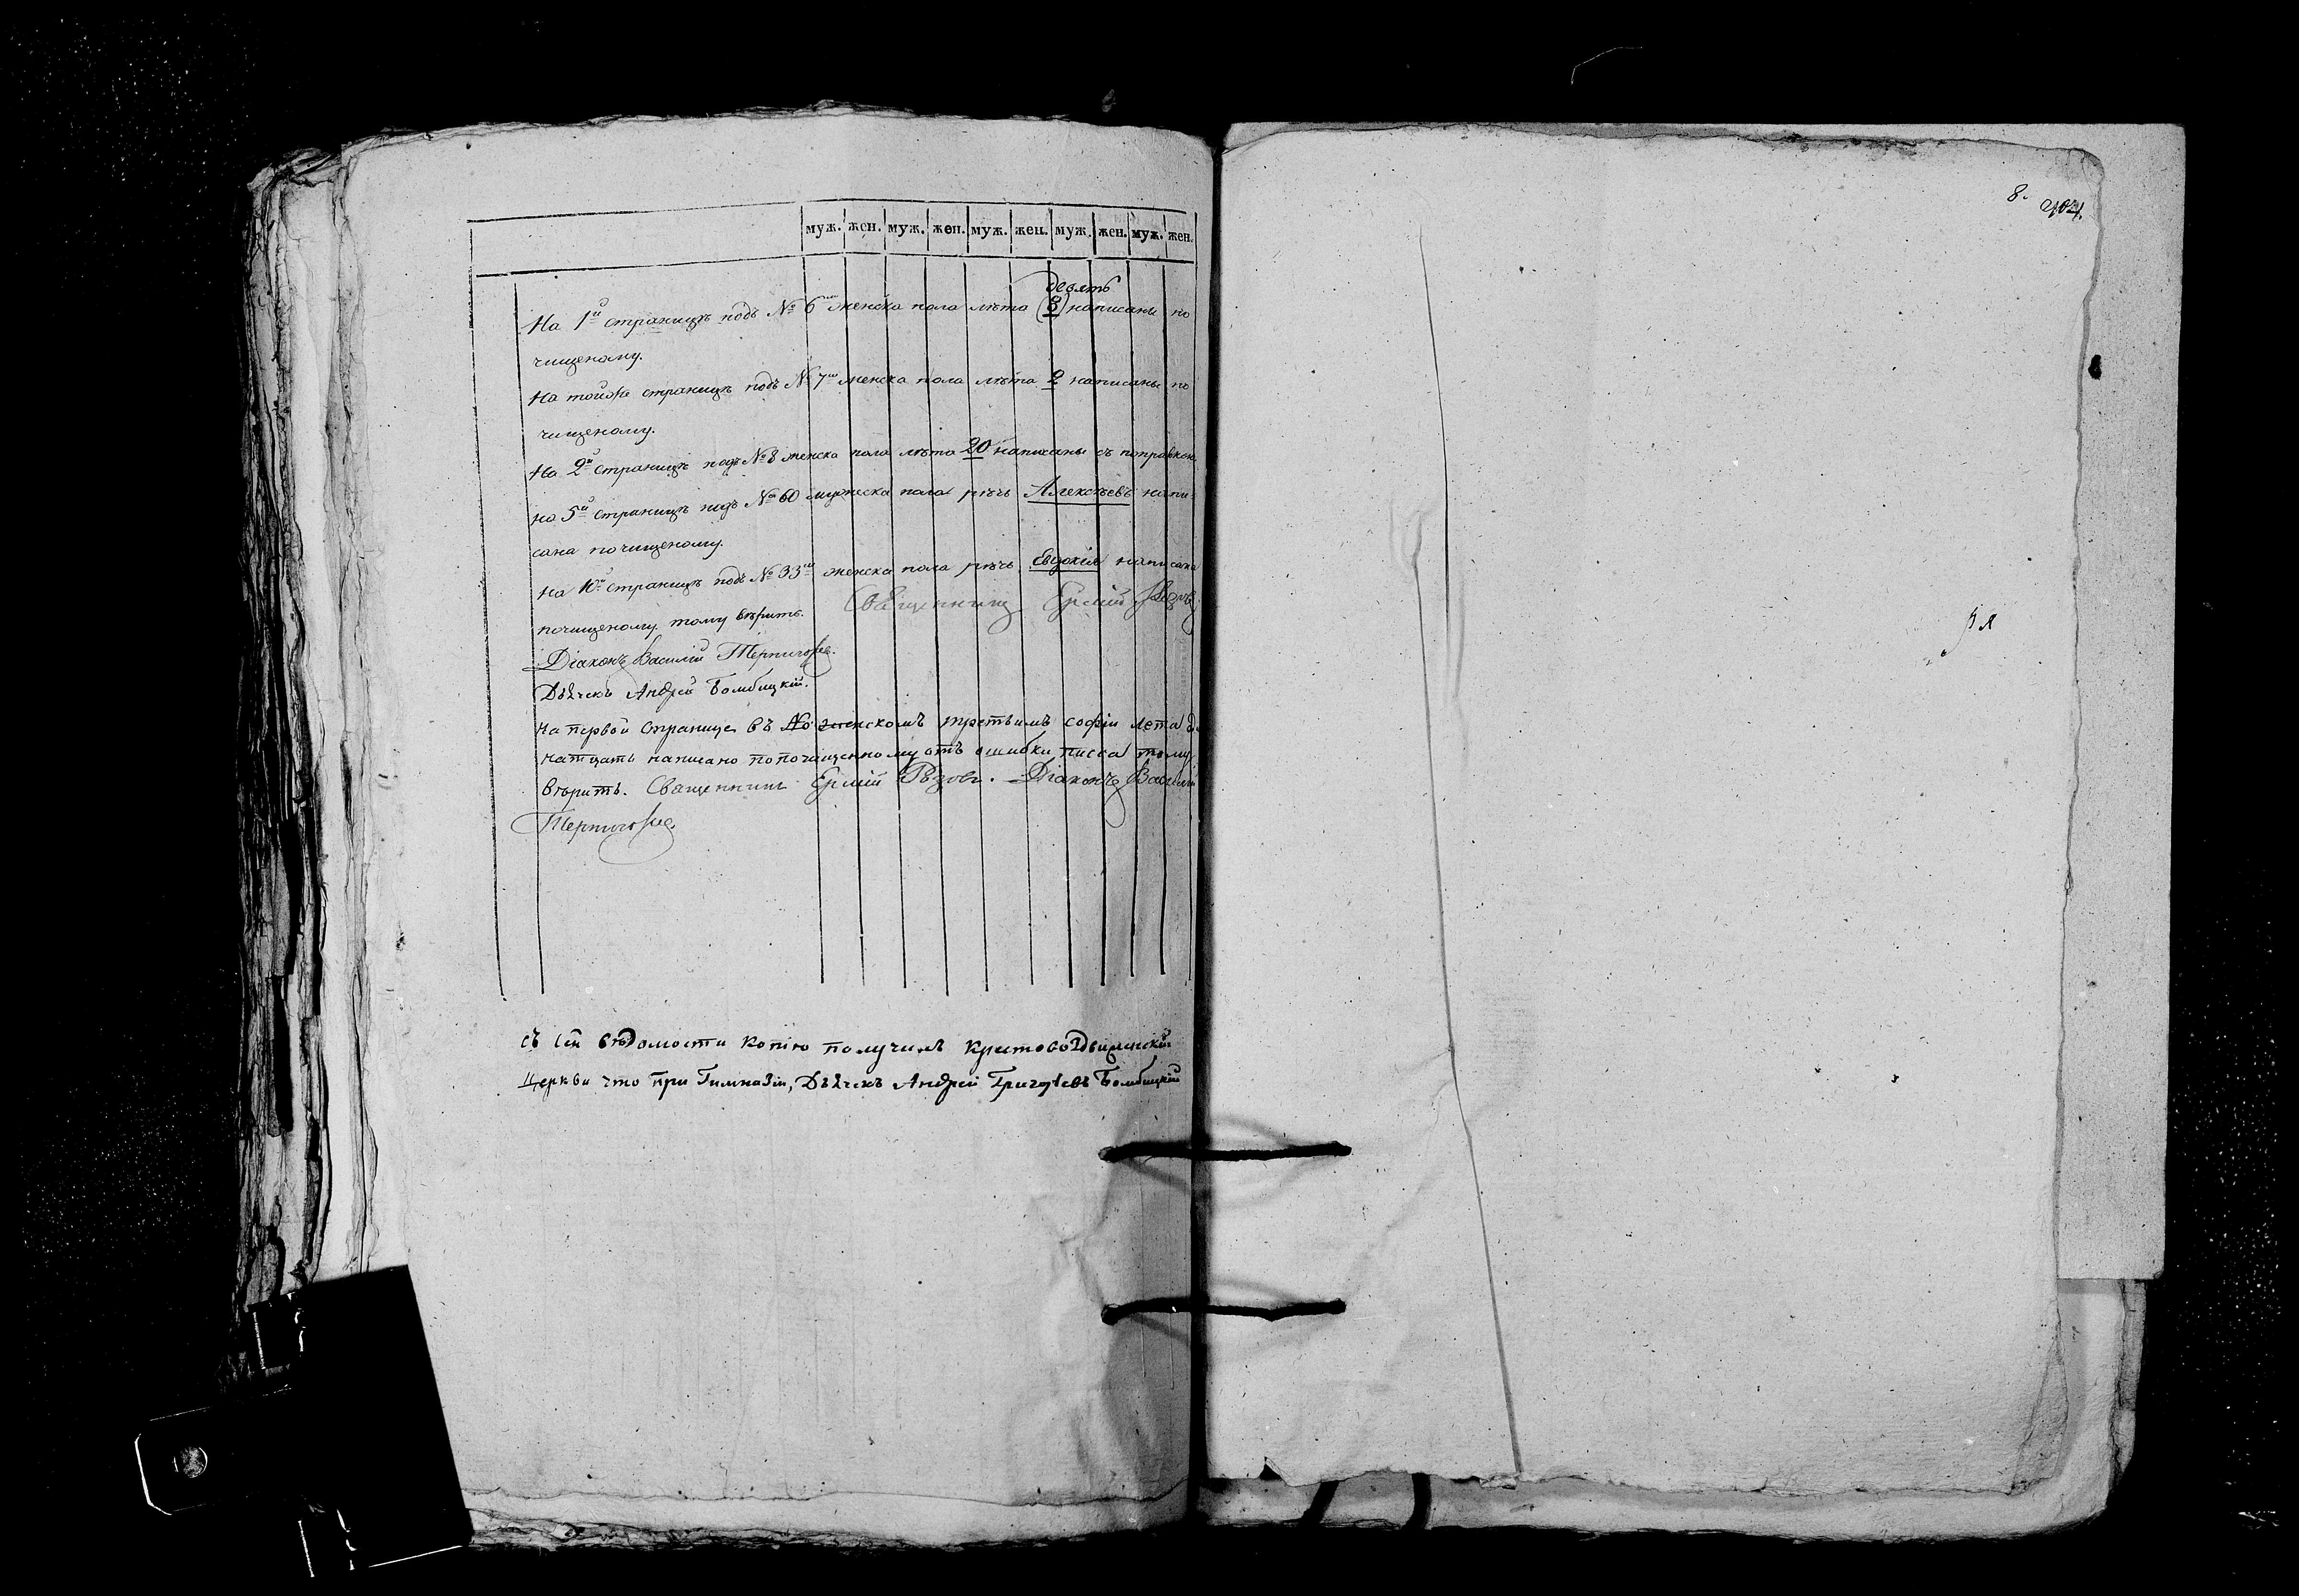 муж. жен. муж. жен. муж. жен. муж. жен. муж. жен.
девять
На 1й страницѣ подъ № 6мъ женска пола лѣта (8) написаны по
чищеному.
На тойже страницѣ подъ № 7мъ женска пола лѣта 2 написаны по
чищеному.
На 2й страницѣ подъ № 8 женска пола лѣта 20 написаны съ поправкою
на 5й страницѣ подъ № 60 мужеска пола рѣчь Алексѣевъ напи-
сана почищеному.
на 10й страницѣ подъ № 33мъ женска пола рѣчь Евдокія написана
почищеному тому вѣрить. Священникъ Ермій Рѣзовъ
Діаконъ Василій Терпигорье.
Дьячекъ Андрей Бомбицкій.
На первой странице въ No женскомъ третьимъ софіи лета
натцать написано попочищенному отъ ошибки писса тому
вѣрить. Священникъ Ермій Рѣзовъ. Діаконъ Василій
Терпигорье.
съ сей вѣдомости копію получилъ крестовоздвиженской
церкви что при Гимназіи, Дьячекъ Андрей Григорьевъ Бомбицкій
8.